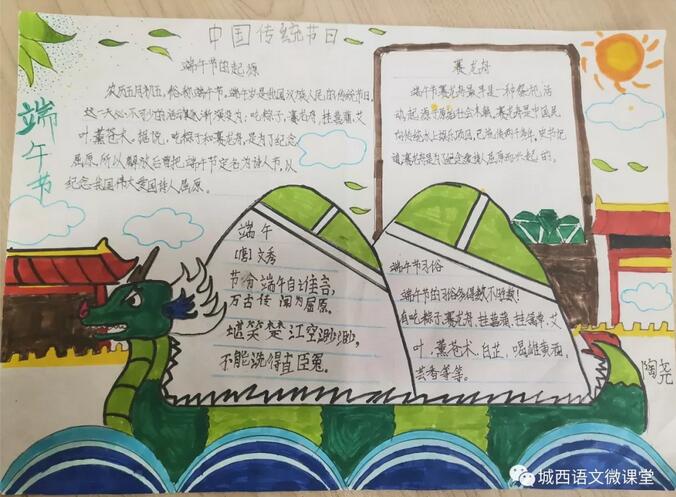 中国传统节日
端午节
端午节的起源
农历五月初五,俗称端午节,端午岁是我国汉族人民的传统节日。
这一天必不可少的活动逐渐演变为:吃粽子,赛龙舟,挂菖蒲,艾
叶,薰苍术。据说,吃粽子和赛龙舟,是为了纪念
屈原,所以解放后曾把端午节定名为诗人节,以
纪念我国伟大爱国诗人屈原。
赛龙舟
端午节赛龙舟最早是一种祭祀活
动起源于原始社会末期,赛龙舟是中国民
间传统水上娱乐项目,已流传两千多年。史书记
诗人屈原而兴起的。
端午
文秀
节分端午自谁言,
万古传闻为屈原。
堪笑楚江空渺渺,
不能洗得直臣冤。
端午节习俗
端午节的习俗多得数不胜数!
有吃粽子,赛龙舟,挂菖蒲,挂蒿草,艾
叶,薰苍术,白芷,喝雄黄酒,
芸香等等。
陶尧
城西语文微课堂